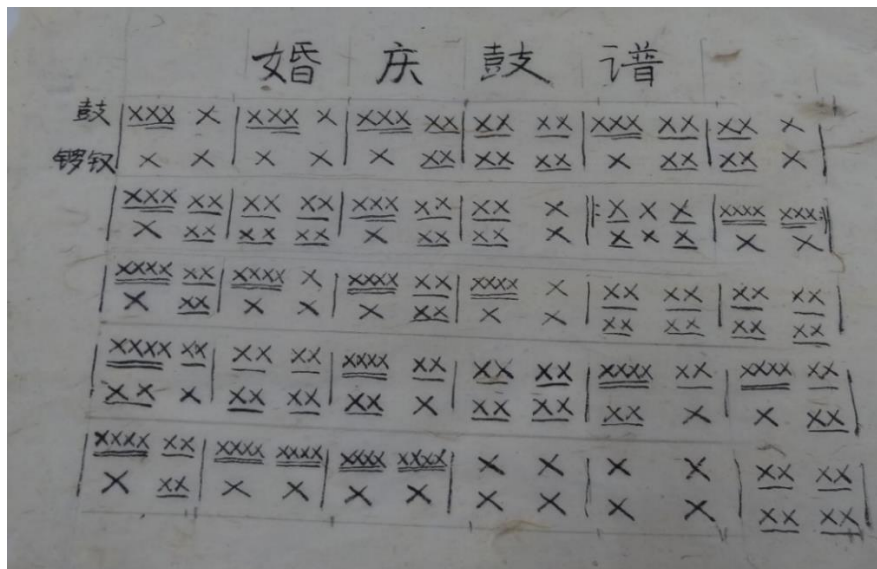 婚庆鼓谱
鼓 |XXX X|XXX X|XXX XX|XX XX|XXX XX|XX X|
锣钗 X X|X X|X XX|XX XX|X XX|XX X|
|XXX XX|XX XX|XXX XX|XX X|‖:X X X|XXXX XXX:‖
X XX|XX XX|X XX|XX X|X X X|X X|
|XXXX XX|XXXX X|XXXX XX|XXXX X|XX XX|XX XX|
X XX|X X|X XX|X X|XX XX|XX XX|
|XXXX XX|XX XX|XXXX XX|XX XX|XXXX XX|XXXX XX|
XX X|XX XX|XX X|XX XX|XX X|X XX|
|XXXX XX|XXXX XXXX|XXXX XXXX|X X|X X|XX XX|
X XX|X X|X X|X X|X X|XX XX|